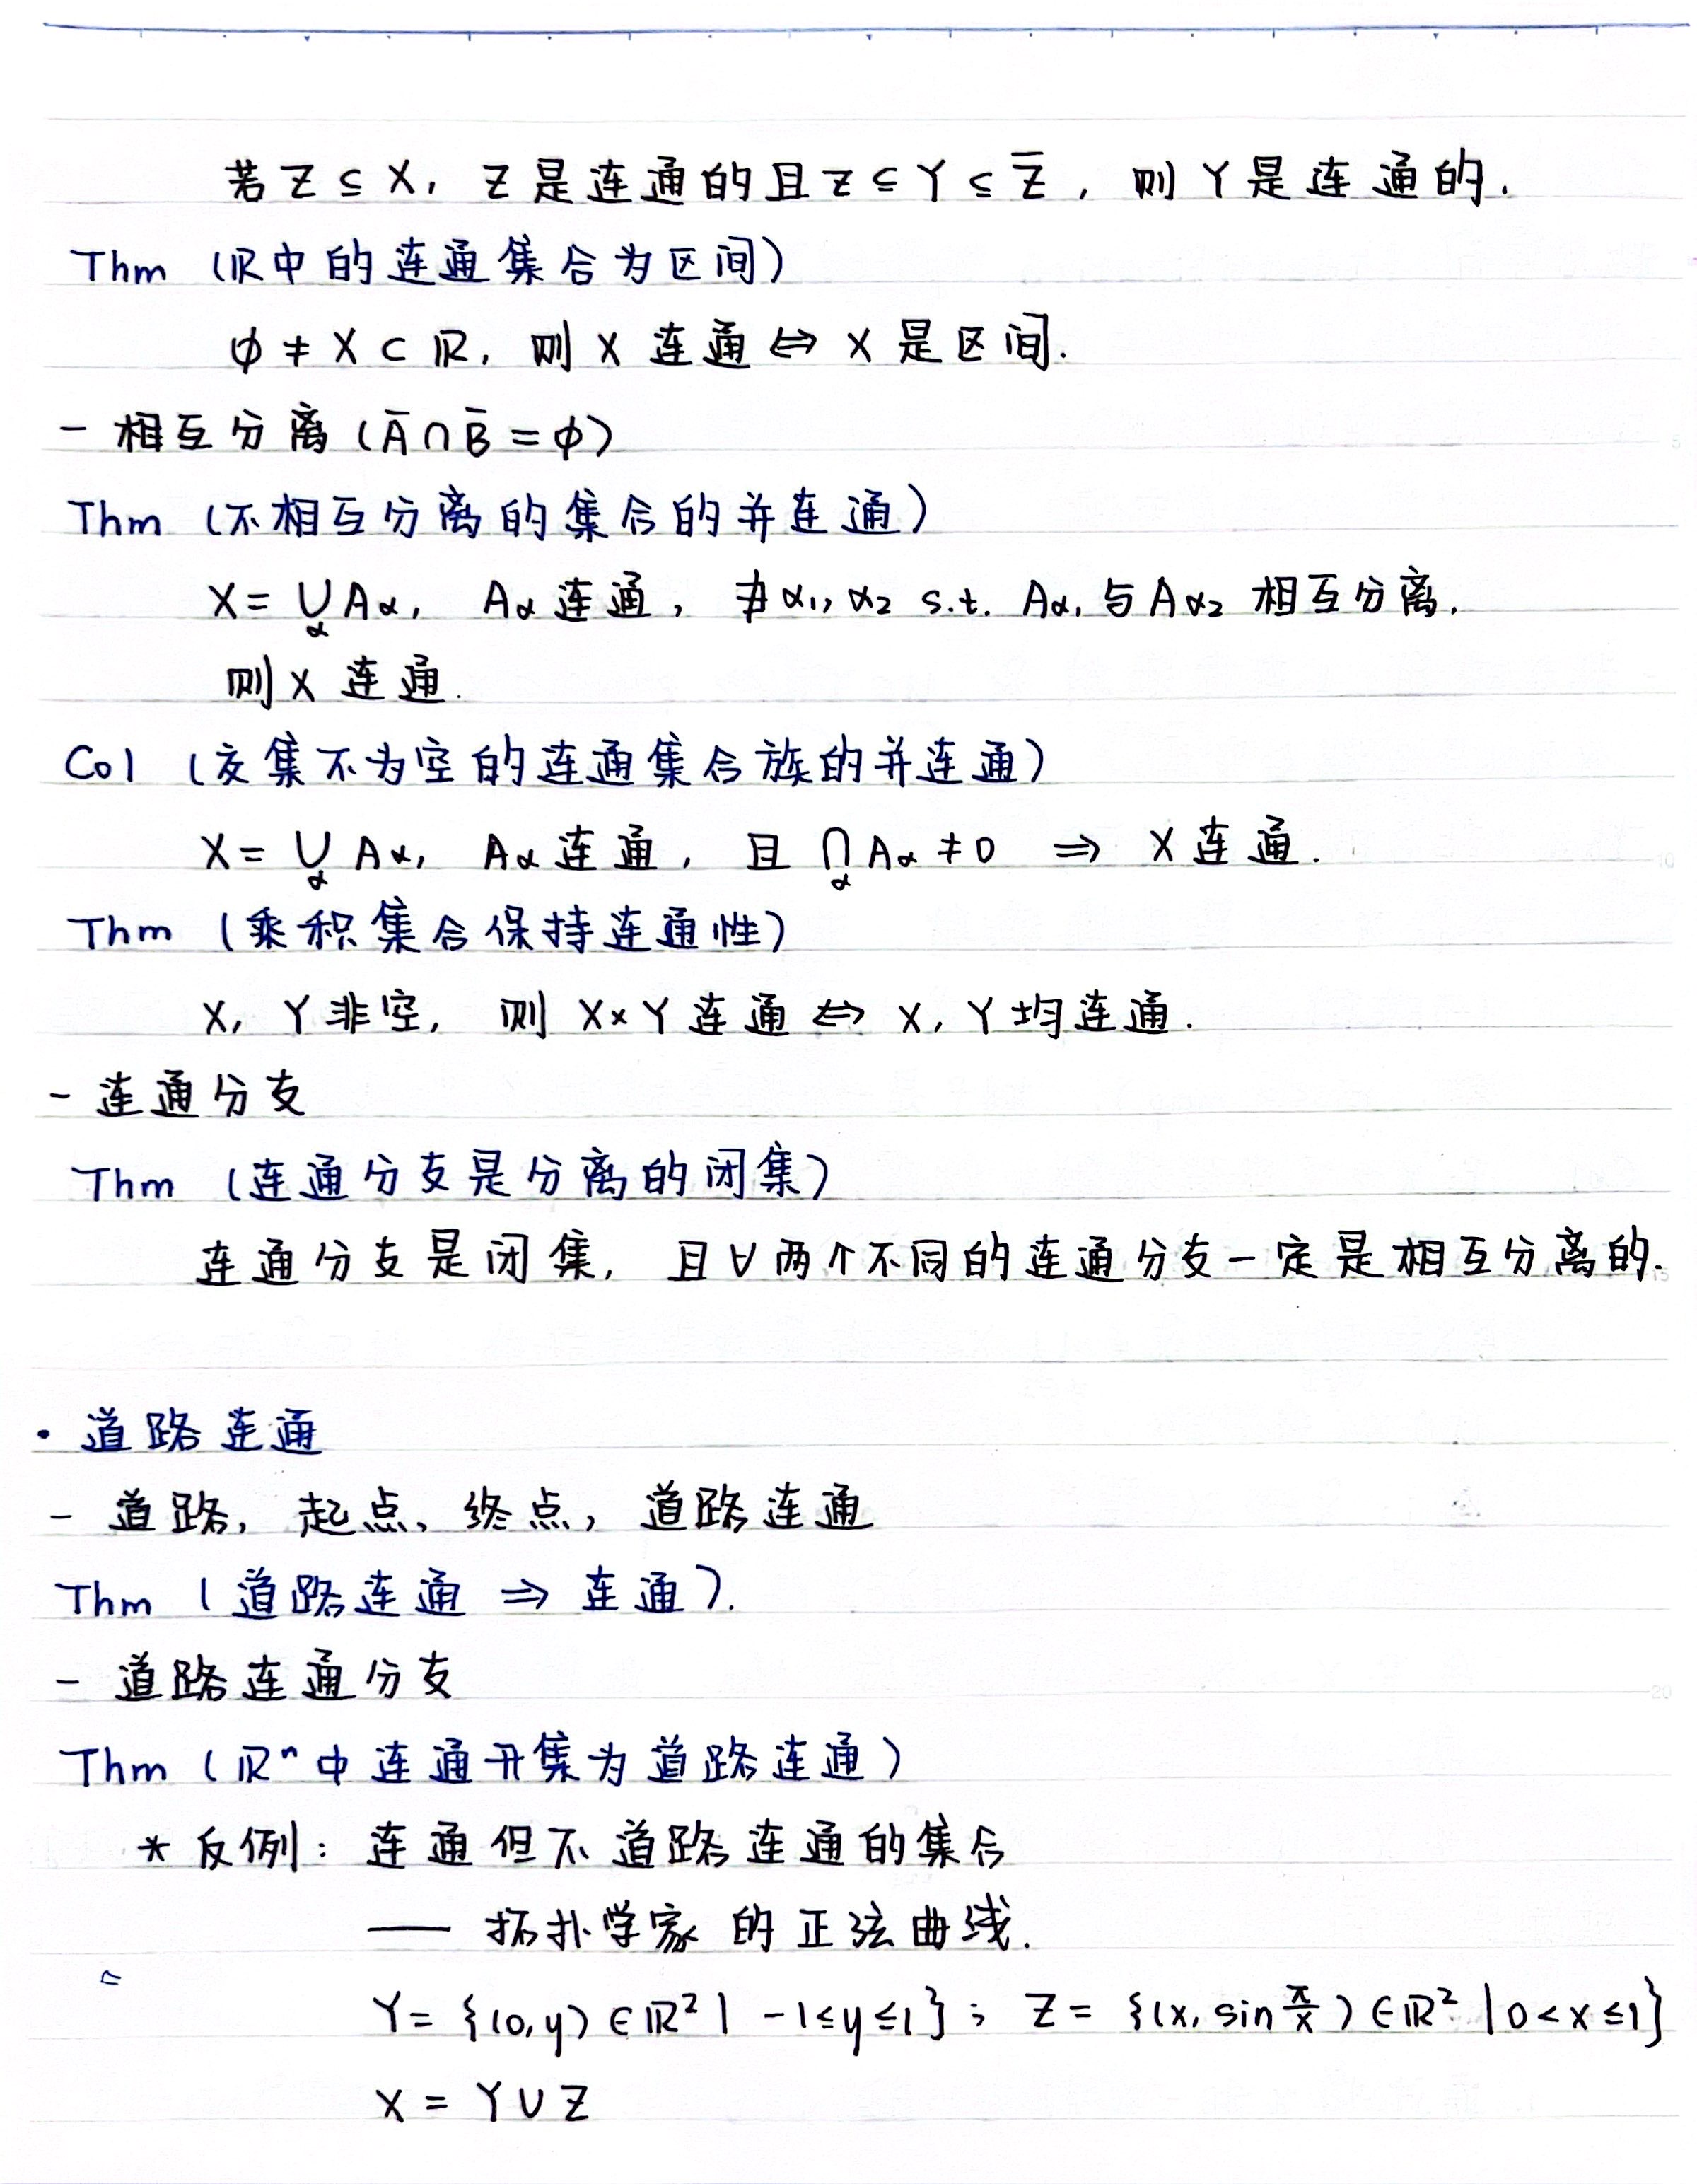 若 Z ⊆ X, Z 是连通的且 Z ⊆ Y ⊆ Z̄, 则 Y 是连通的.
Thm (ℝ中的连通集合为区间)
φ ≠ X ⊂ ℝ, 则 X 连通 ⇔ X 是区间.
- 相互分离 (Ā∩B̄ = φ)
Thm (不相互分离的集合的并连通)
X = ⋃_α A_α, A_α 连通, ∄ α₁, α₂ s.t. A_α₁ 与 A_α₂ 相互分离,
则 X 连通.
Col (交集不为空的连通集合族的并连通)
X = ⋃_α A_α, A_α 连通, 且 ⋂_α A_α ≠ 0 ⇒ X 连通.
Thm (乘积集合保持连通性)
X, Y 非空, 则 X×Y 连通 ⇔ X, Y 均连通.
- 连通分支
Thm (连通分支是分离的闭集)
连通分支是闭集, 且 ∀ 两个不同的连通分支一定是相互分离的.
· 道路连通
- 道路, 起点、终点, 道路连通
Thm (道路连通 ⇒ 连通).
- 道路连通分支
Thm (ℝⁿ中连通开集为道路连通)
* 反例: 连通但不道路连通的集合
—— 拓扑学家的正弦曲线.
Y = {(0,y) ∈ ℝ² | -1≤y≤1}; Z = {(x, sin π/x) ∈ ℝ² | 0<x≤1}
X = Y ∪ Z